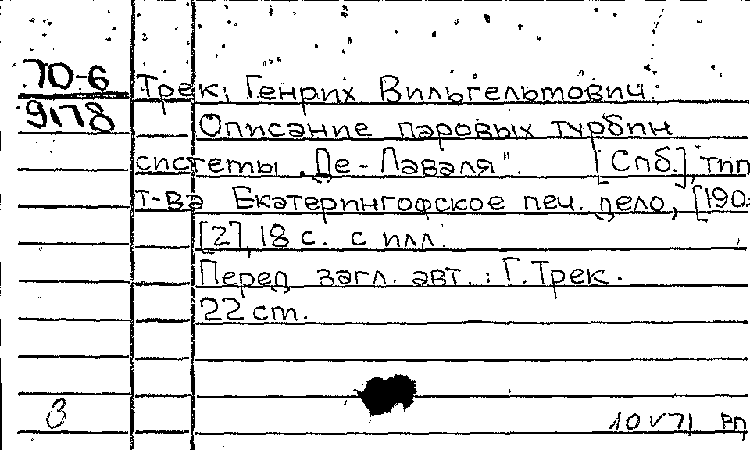 70-6
9178
Трек, Генрих Вильгельмович.
Описание паровых турбин
системы „Де-Лаваля". [Спб.], тип
т-ва Екатерингофское печ. дело, [190
[2], 18 с. с илл.
Перед загл. авт.: Г. Трек.
22 cm.
10 V 71 РП